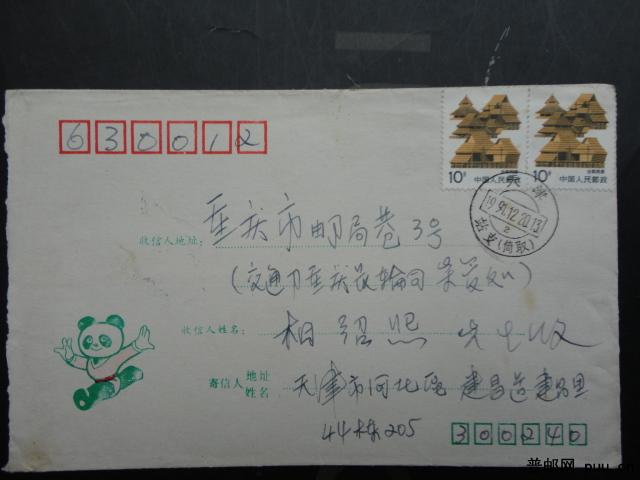 630012
10分 中国人民邮政
10分 中国人民邮政
天津
1991.12.20.13
2
(筒取)
收信人地址: 重庆市邮局巷3号
(交通部重庆长轮司
收信人姓名: 相绍熙 先生收
寄信人 地址 姓名 天津市河北区建昌道
44栋205
300240
普邮网 puu.cn